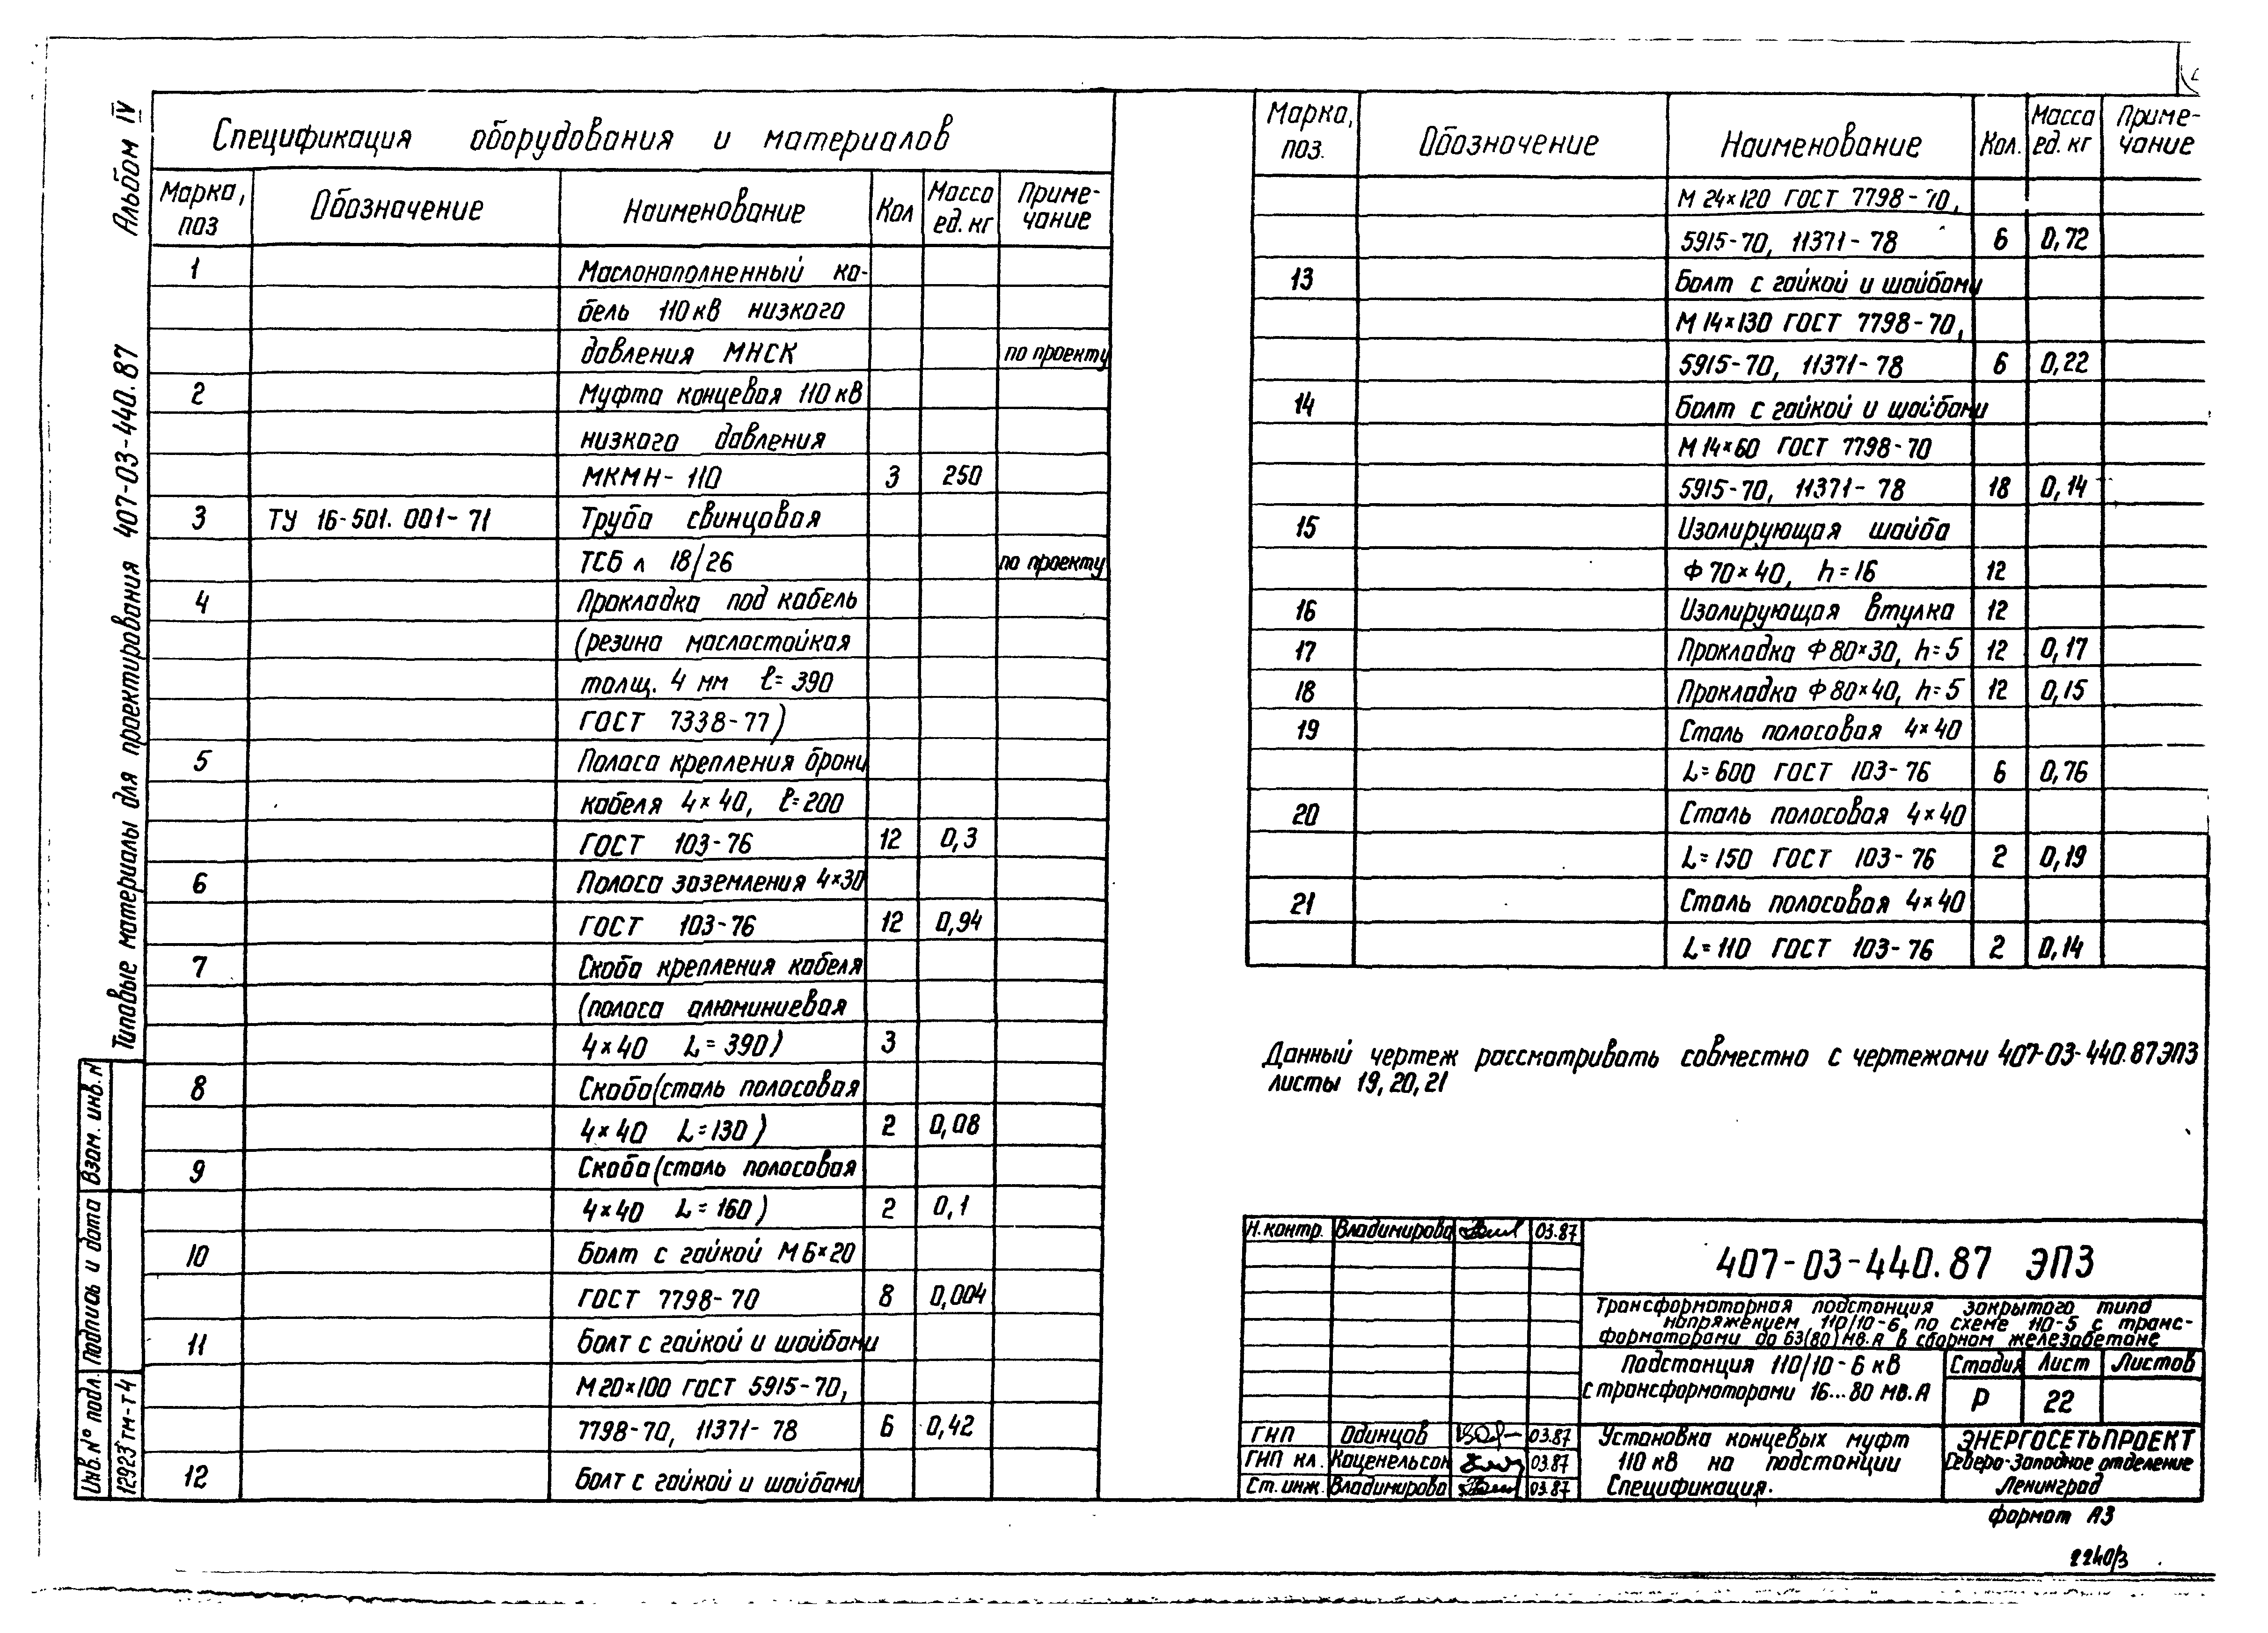 Альбом IV
Типовые материалы для проектирования 407-03-440.87
Спецификация оборудования и материалов
Марка, поз Обозначение Наименование Кол Масса ед. кг Приме-чание
1 Маслонаполненный ка-
бель 110 кВ низкого
давления МНСК по проекту
2 Муфта концевая 110 кВ
низкого давления
МКМН-110 3 250
3 ТУ 16-501.001-71 Труба свинцовая
ТСБл 18/26 по проекту
4 Прокладка под кабель
(резина маслостойкая
толщ. 4 мм ℓ=390
ГОСТ 7338-77)
5 Полоса крепления брони
кабеля 4×40, ℓ=200
ГОСТ 103-76 12 0,3
6 Полоса заземления 4×30
ГОСТ 103-76 12 0,94
7 Скоба крепления кабеля
(полоса алюминиевая
4×40 L=390) 3
8 Скоба (сталь полосовая
4×40 L=130) 2 0,08
9 Скоба (сталь полосовая
4×40 L=160) 2 0,1
10 Болт с гайкой М6×20
ГОСТ 7798-70 8 0,004
11 Болт с гайкой и шайбами
М20×100 ГОСТ 5915-70,
7798-70, 11371-78 6 0,42
12 Болт с гайкой и шайбами
Марка, поз. Обозначение Наименование Кол. Масса ед. кг Приме-чание
М24×120 ГОСТ 7798-70,
5915-70, 11371-78 6 0,72
13 Болт с гайкой и шайбами
М14×130 ГОСТ 7798-70,
5915-70, 11371-78 6 0,22
14 Болт с гайкой и шайбами
М14×60 ГОСТ 7798-70
5915-70, 11371-78 18 0,14
15 Изолирующая шайба
Ф70×40, h=16 12
16 Изолирующая втулка 12
17 Прокладка Ф80×30, h=5 12 0,17
18 Прокладка Ф80×40, h=5 12 0,15
19 Сталь полосовая 4×40
L=600 ГОСТ 103-76 6 0,76
20 Сталь полосовая 4×40
L=150 ГОСТ 103-76 2 0,19
21 Сталь полосовая 4×40
L=110 ГОСТ 103-76 2 0,14
Данный чертеж рассматривать совместно с чертежами 407-03-440.87 ЭП3
листы 19, 20, 21
Н.контр. Владимирова 03.87
407-03-440.87 ЭП3
Трансформаторная подстанция закрытого типа
напряжением 110/10-6 по схеме 110-5 с транс-
форматорами до 63(80) МВ.А в сборном железобетоне
Подстанция 110/10-6 кВ
с трансформаторами 16...80 МВ.А
Стадия Лист Листов
Р 22
ГНП Одинцов 03.87
ГНП кл. Каценельсон 03.87
Ст. инж. Владимирова 03.87
Установка концевых муфт
110 кВ на подстанции
Спецификация.
ЭНЕРГОСЕТЬПРОЕКТ
Северо-Западное отделение
Ленинград
формат А3
2240/3
Инв.№ подл. Подпись и дата Взам. инв.№
12923тм-т4